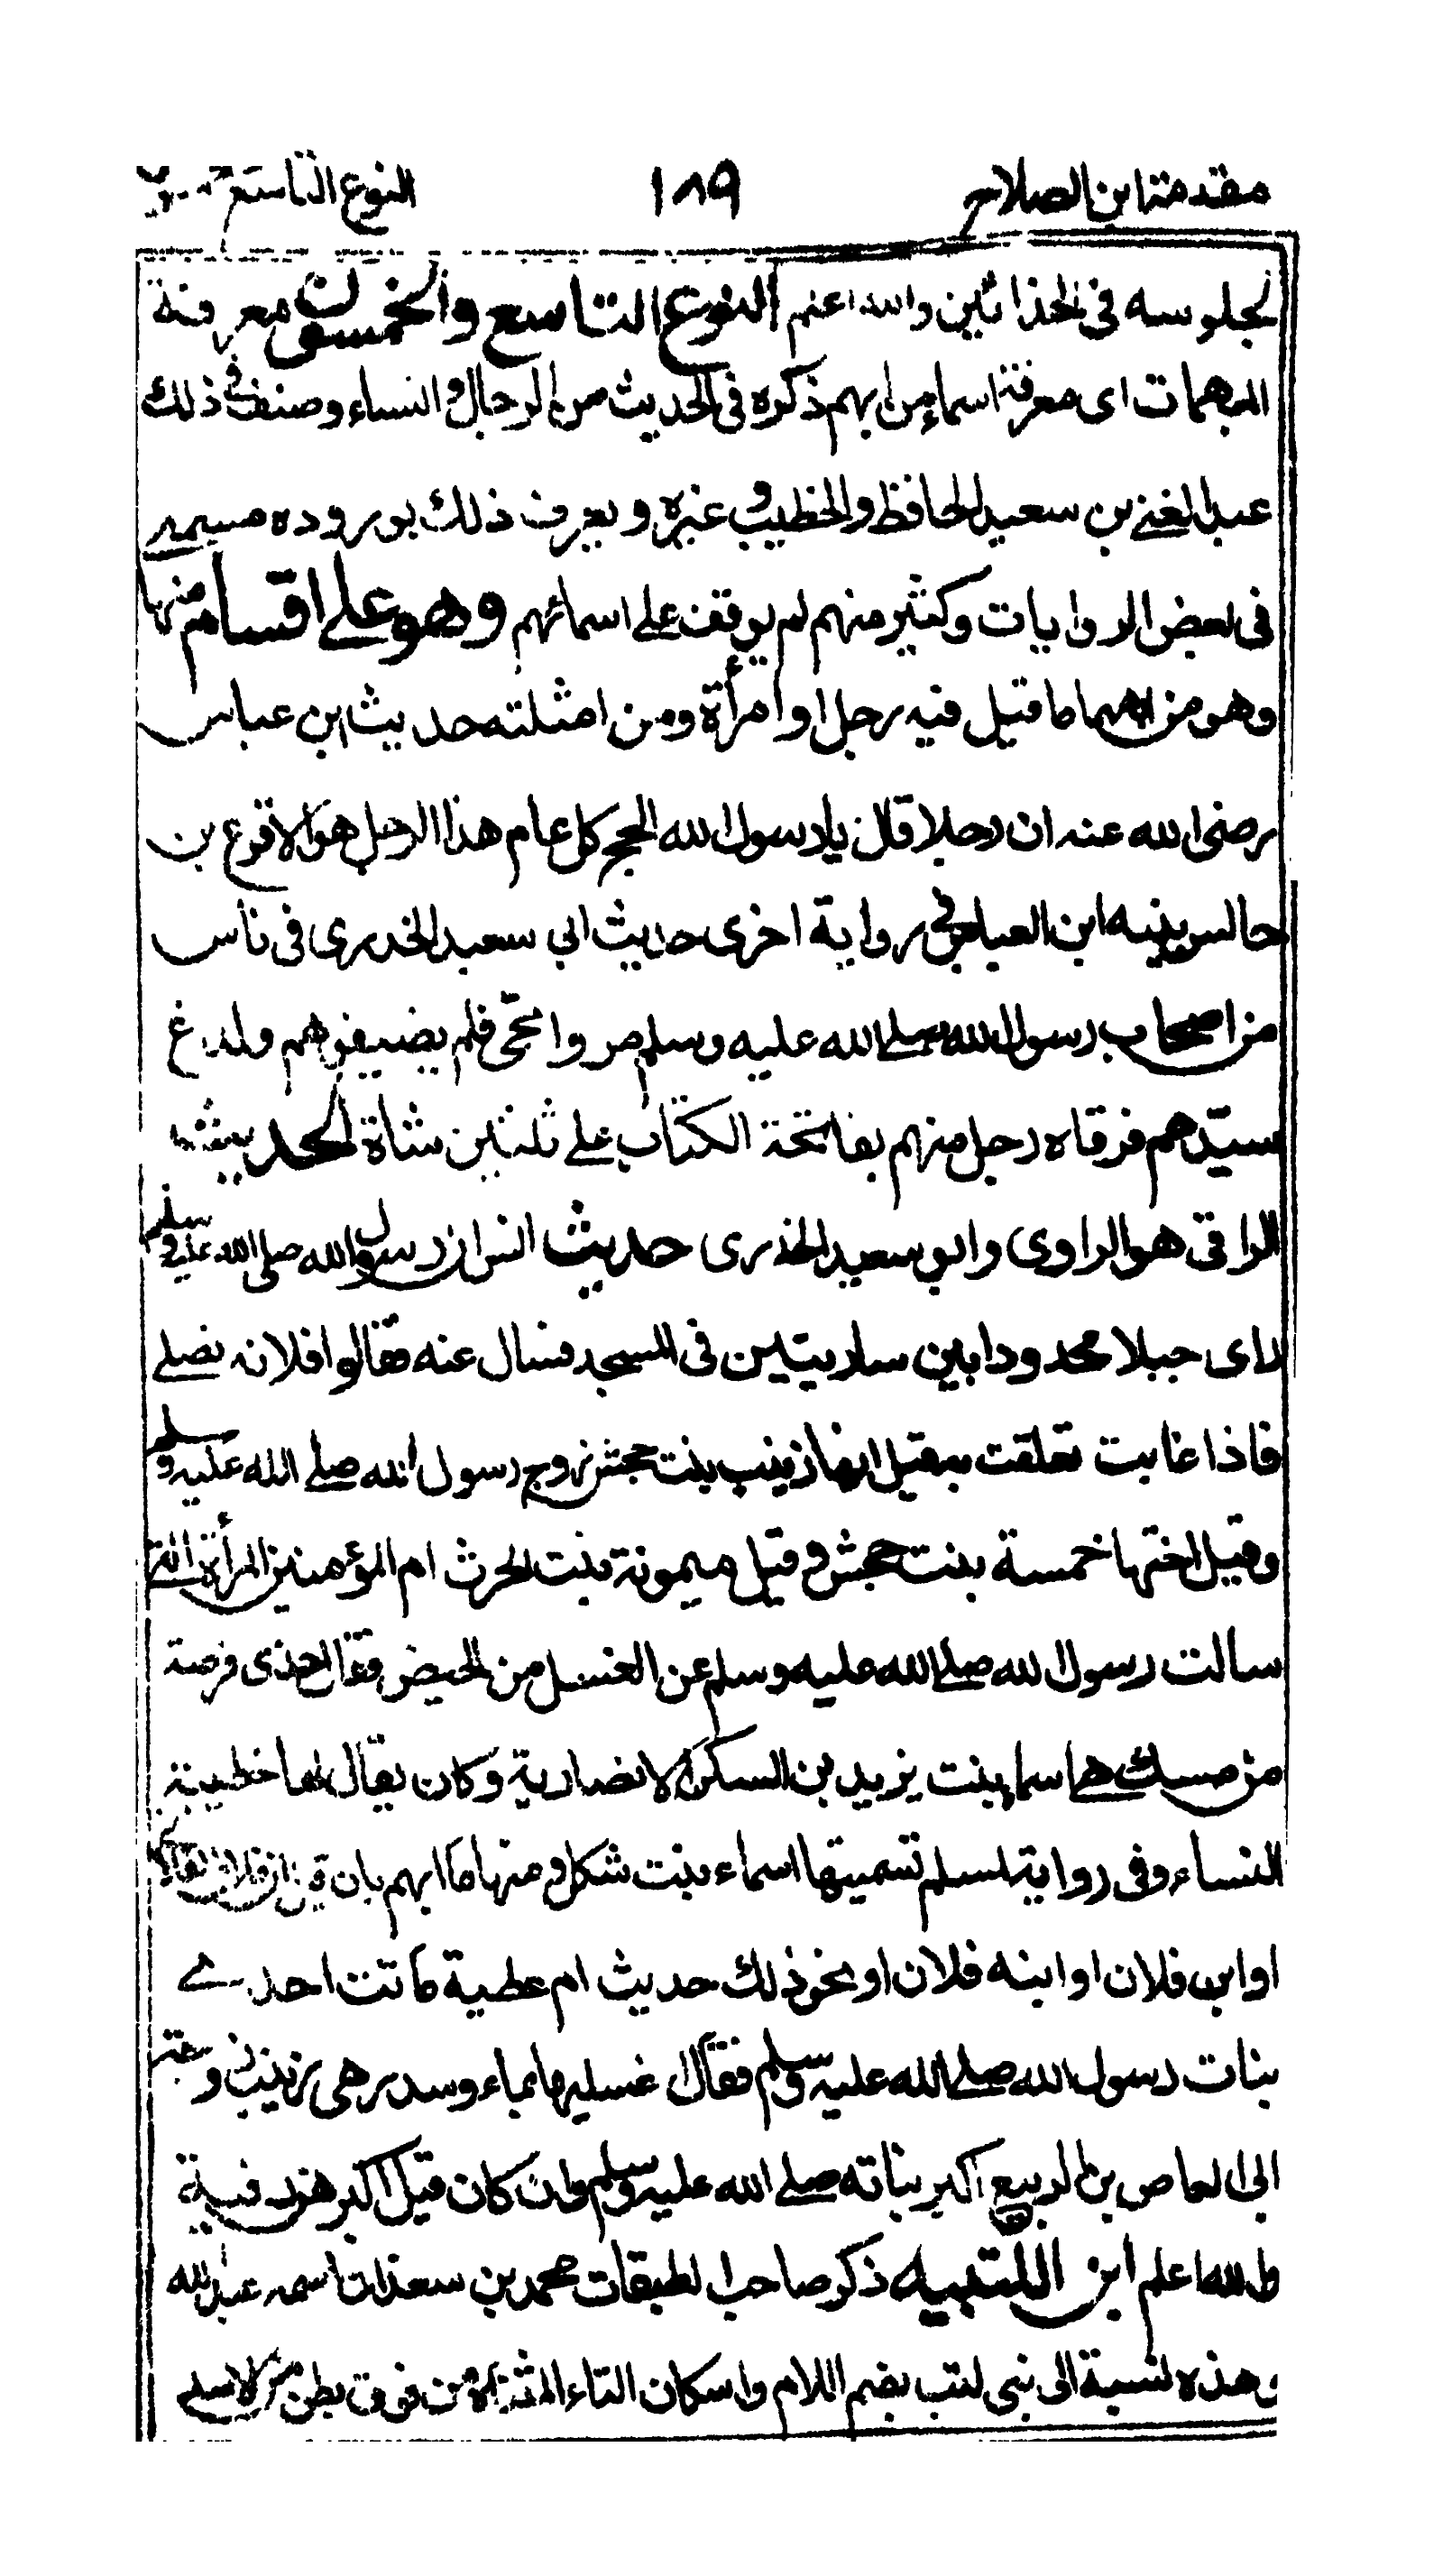 مقدمة ابن الصلاح ١٨٩ النوع التاسع
لجلوسه في الحذائين والله اعلم النوع التاسع والخمسون معرفة
المبهمات اى معرفة اسماء من ابهم ذكره في الحديث من الرجال والنساء وصنف في ذلك
عبد الغني بن سعيد الحافظ والخطيب وغيره ويعرف ذلك بوروده مسمى
في بعض الروايات وكثير منهم لم يوقف على اسمائهم وهو على اقسام منها
وهو من ابهمها ما قيل فيه رجل او امرأة ومن امثلته حديث ابن عباس
رضى الله عنه ان رجلا قال يا رسول الله الحج كل عام هذا الرجل هو الاقرع بن
حابس بينه ابن العباس في رواية اخرى حديث ابي سعيد الخدرى في ناس
من اصحاب رسول الله صلى الله عليه وسلم مروا بحّى فلم يضيفوهم ولدغ
سيّدهم فرقاه رجل منهم بفاتحة الكتاب على ثلثين شاة الحديث
الراقى هو الراوى وابو سعيد الخدرى حديث انس ان رسول الله صلى الله عليه وسلم
راى حبلا محدودا بين ساريتين في المسجد فسال عنه فقالوا فلانه تصلى
فاذا غابت تعلقت به قيل انها زينب بنت جحش زوج رسول الله صلى الله عليه وسلم
وقيل اختها خمسة بنت جحش وقيل ميمونة بنت الحرث ام المؤمنين المرأة التى
سالت رسول الله صلى الله عليه وسلم عن الغسل من الحيض فقال خذى فرصة
من مسك هى اسماء بنت يزيد بن السكن الانصارية وكان يقال لها خطيبة
النساء وفى رواية لمسلم تسميتها اسماء بنت شكل ومنها ما ابهم بان
او ابن فلان او ابنه فلان او نحو ذلك حديث ام عطية ماتت احدى
بنات رسول الله صلى الله عليه وسلم فقال اغسليها بماء وسدر هى زينب زوجة
ابى العاص بن الربيع اكبر بناته صلى الله عليه وسلم وان كان قيل اكبرهن رقية
والله اعلم ابن اللتبيه ذكر صاحب الطبقات محمد بن سعد ان اسمه عبد الله
وهذه نسبة الى بنى لتب بضم اللام واسكان التاء المثناة من فوق بطن من الاسد